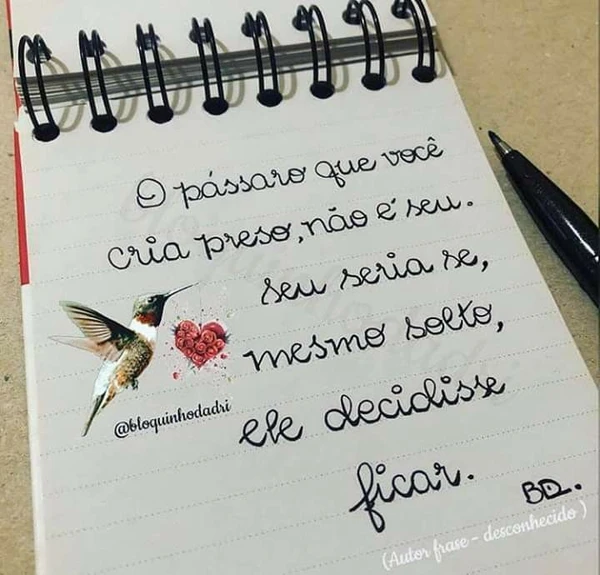 O pássaro que você
cria preso, não é seu.
seu seria se,
mesmo solto,
ele decidisse
ficar.
@bloquinhodadri
BD.
(Autor frase - desconhecido)